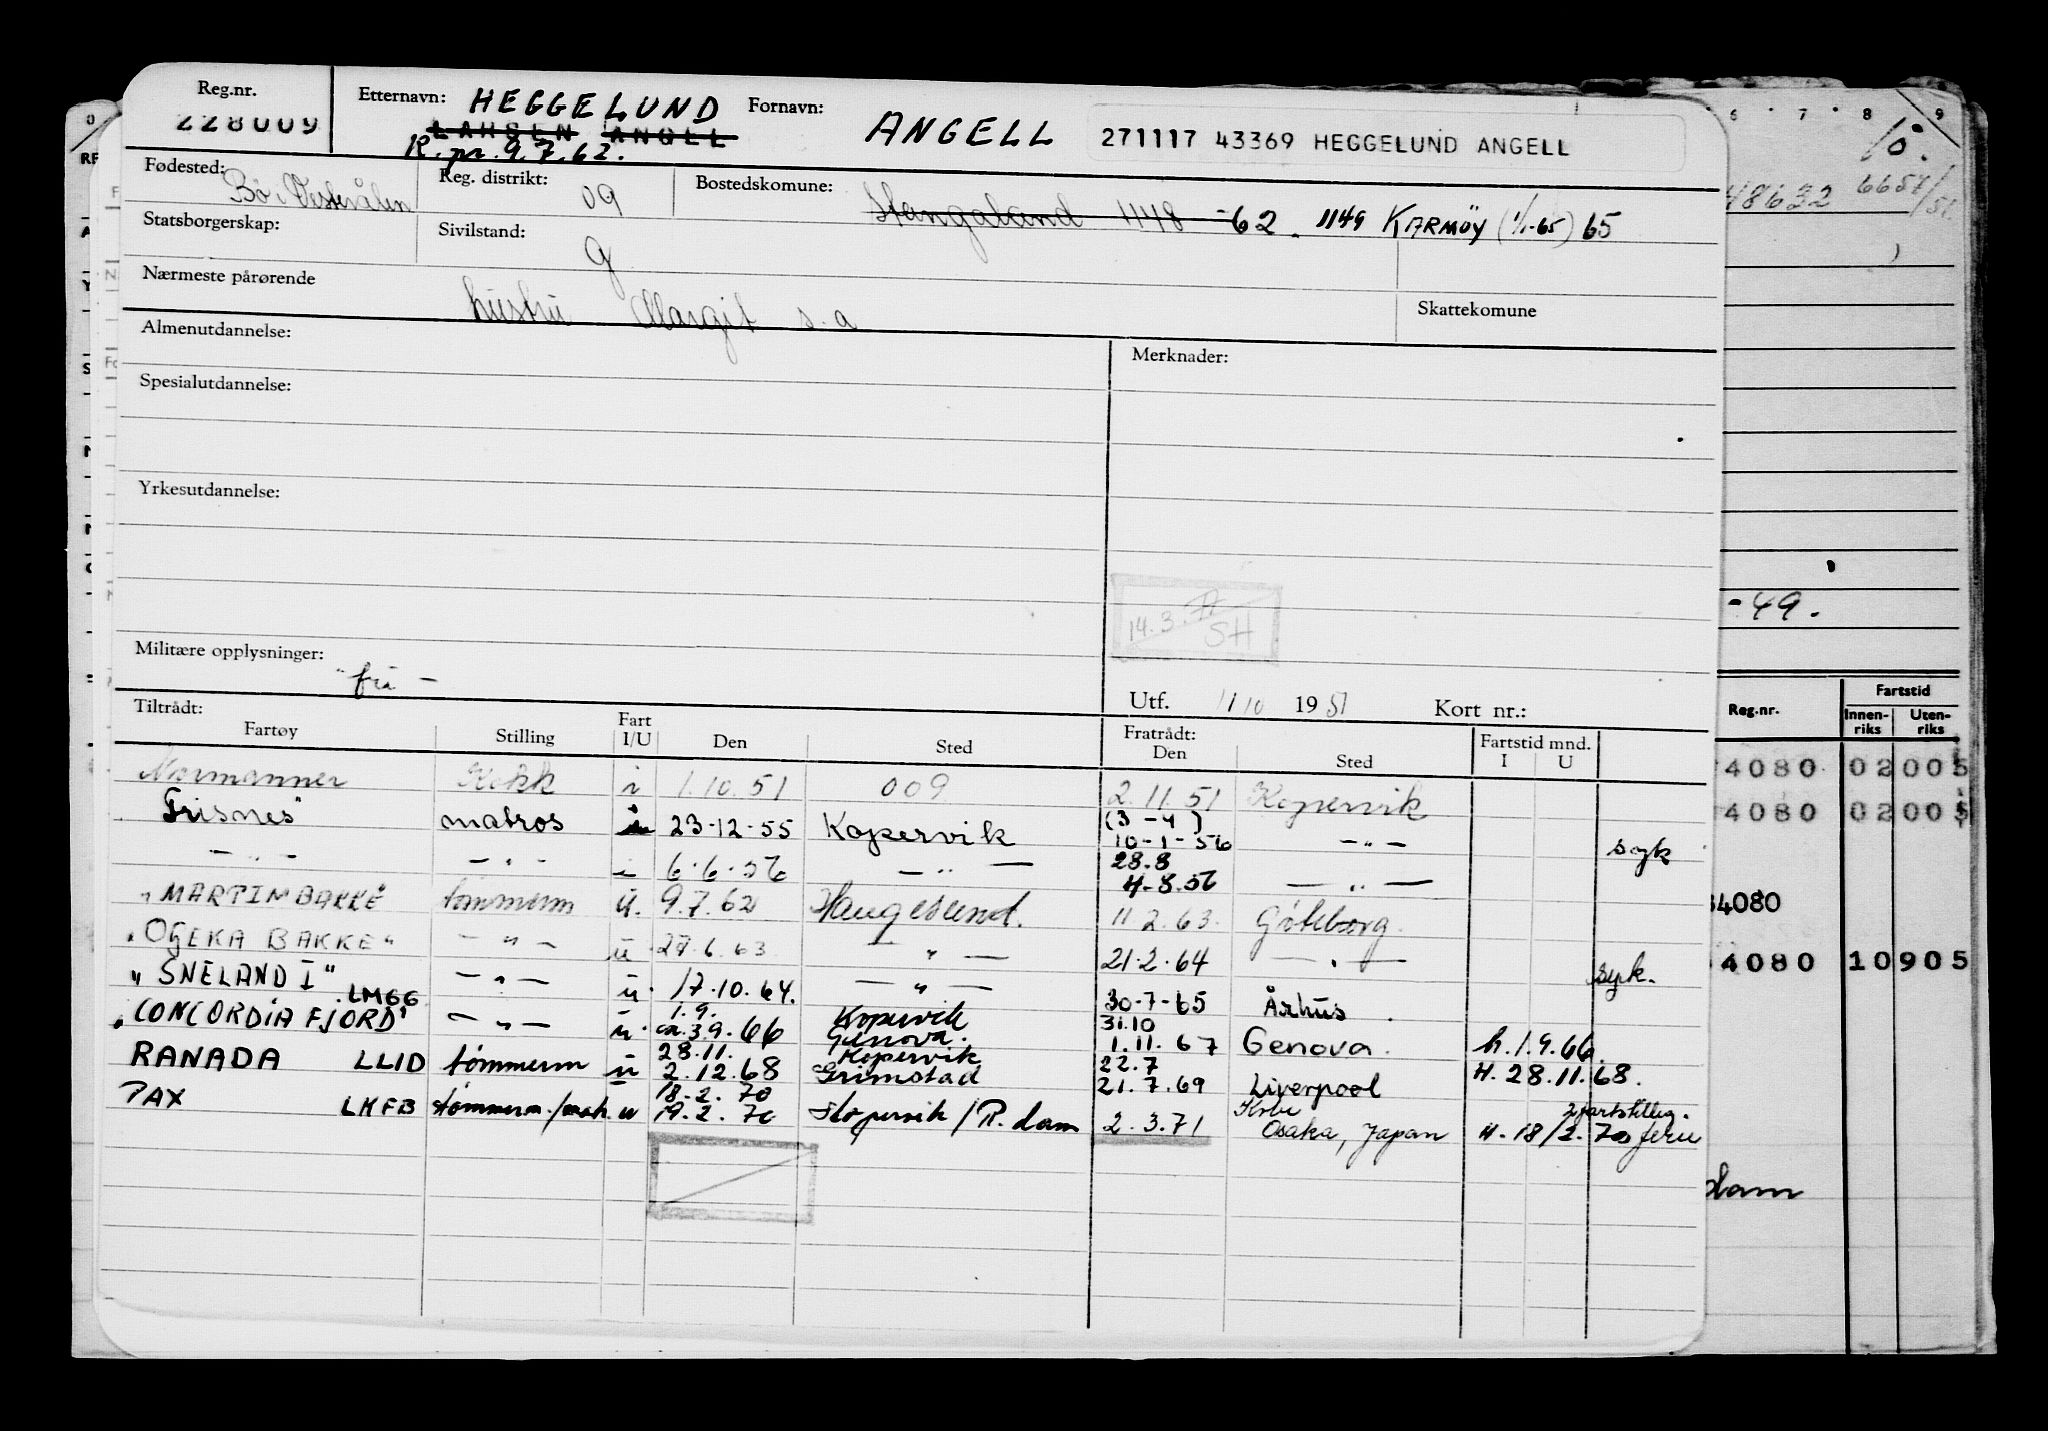 Reg.nr. 228009
Etternavn: HEGGELUND Fornavn: ANGELL 271117 43369 HEGGELUND ANGELL
LARSEN ANGELL
R. pr. 9.7.62.
Fødested: Bø i Vesterålen Reg. distrikt: 09 Bostedskomune: Stangaland 1148 -62. 1149 KARMØY (1/1-65) 65
Statsborgerskap: Sivilstand: g
Nærmeste pårørende hustru Margit s.a Skattekomune
Almenutdannelse: Merknader:
Spesialutdannelse:
Yrkesutdannelse:
14.3. SH
Militære opplysninger: fri -
Utf. 11/10 1951 Kort nr.:
Tiltrådt: Fratrådt:
Fartøy Stilling Fart I/U Den Sted Den Sted Fartstid mnd. I U
Normanner Kokk i 1.10.51 009 2.11.51 Kopervik
Trisnes" matros i 23-12-55 Kopervik (3-4) 10-1-56 -"- syk
-"- -"- i 6.6.56 -"- 28.8 4-8.56 -"-
"MARTIN BAKKE" tømmerm u. 9.7.62 Haugesund. 11 2.63. Göteborg.
"OGEKA BAKKE" -"- u 28.6.63 -"- 21.2.64 -"- syk.
"SNELAND I" -"- u. 17.10.64. -"- 30-7-65 Århus.
"CONCORDIA FJORD" LMGG -"- u. 1.9. ca. 3.9.66 Kopervik Genova. 31.10 1.11.67 Genova. h. 1.9.66.
RANADA LLID tømmerm u 28.11. 2.12.68 Kopervik Grimstad 22.7 21.7.69 Liverpool H. 28.11.68.
PAX LKFB tømmerm./mak. u 18.2.70 19.2.70 Kopervik/R.dam 2.3.71 Kobe Osaka, Japan H. 18/2.70 ferie
0 6 7 8 9
10.
48632 6657/51
-49.
Reg.nr. Fartstid
Innenriks Utenriks
4080 02005
4080 02005
4080
4080 10905
dam